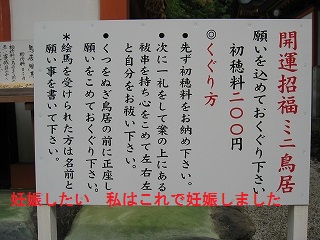 開運招福ミニ鳥居
願いを込めておくぐり下さい
初穂料二〇〇円
◎くぐり方
●先ず初穂料をお納め下さい。
●次に一礼をして案の上にある
祓串を持ち心をこめて左右左
と自分をお祓い下さい。
●くつをぬぎ鳥居の前に正座し
願いをこめておくぐり下さい。
＊絵馬を受けられた方は名前と
願い事を書いて下さい。
妊娠したい　私はこれで妊娠しました